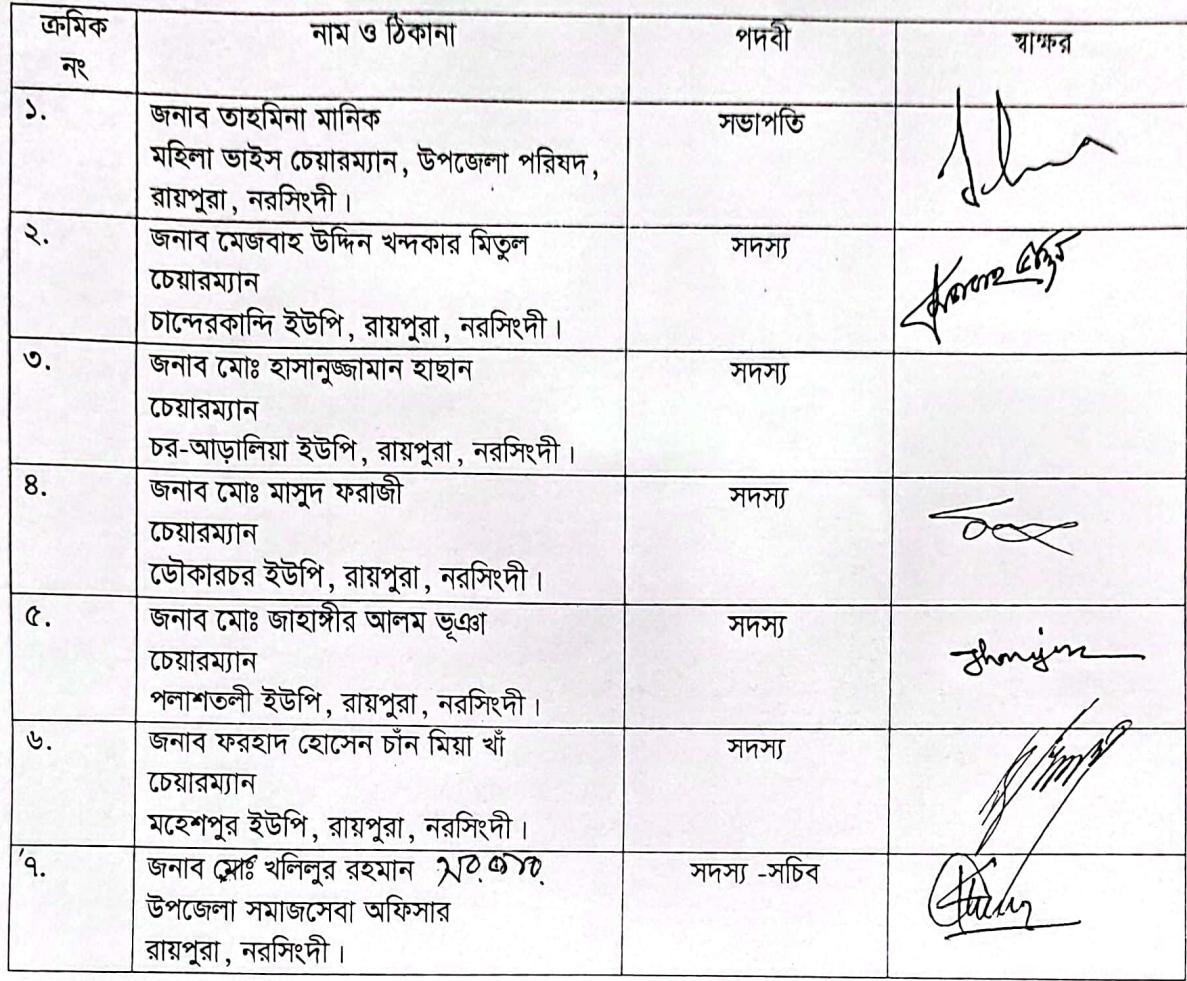 ক্রমিক নং নাম ও ঠিকানা পদবী স্বাক্ষর
১. জনাব তাহমিনা মানিক সভাপতি
মহিলা ভাইস চেয়ারম্যান, উপজেলা পরিষদ,
রায়পুরা, নরসিংদী।
২. জনাব মেজবাহ উদ্দিন খন্দকার মিতুল সদস্য
চেয়ারম্যান
চান্দেরকান্দি ইউপি, রায়পুরা, নরসিংদী।
৩. জনাব মোঃ হাসানুজ্জামান হাছান সদস্য
চেয়ারম্যান
চর-আড়ালিয়া ইউপি, রায়পুরা, নরসিংদী।
৪. জনাব মোঃ মাসুদ ফরাজী সদস্য
চেয়ারম্যান
ডৌকারচর ইউপি, রায়পুরা, নরসিংদী।
৫. জনাব মোঃ জাহাঙ্গীর আলম ভূঞা সদস্য
চেয়ারম্যান
পলাশতলী ইউপি, রায়পুরা, নরসিংদী।
৬. জনাব ফরহাদ হোসেন চাঁন মিয়া খাঁ সদস্য
চেয়ারম্যান
মহেশপুর ইউপি, রায়পুরা, নরসিংদী।
৭. জনাব মোঃ খলিলুর রহমান সদস্য -সচিব
উপজেলা সমাজসেবা অফিসার
রায়পুরা, নরসিংদী।